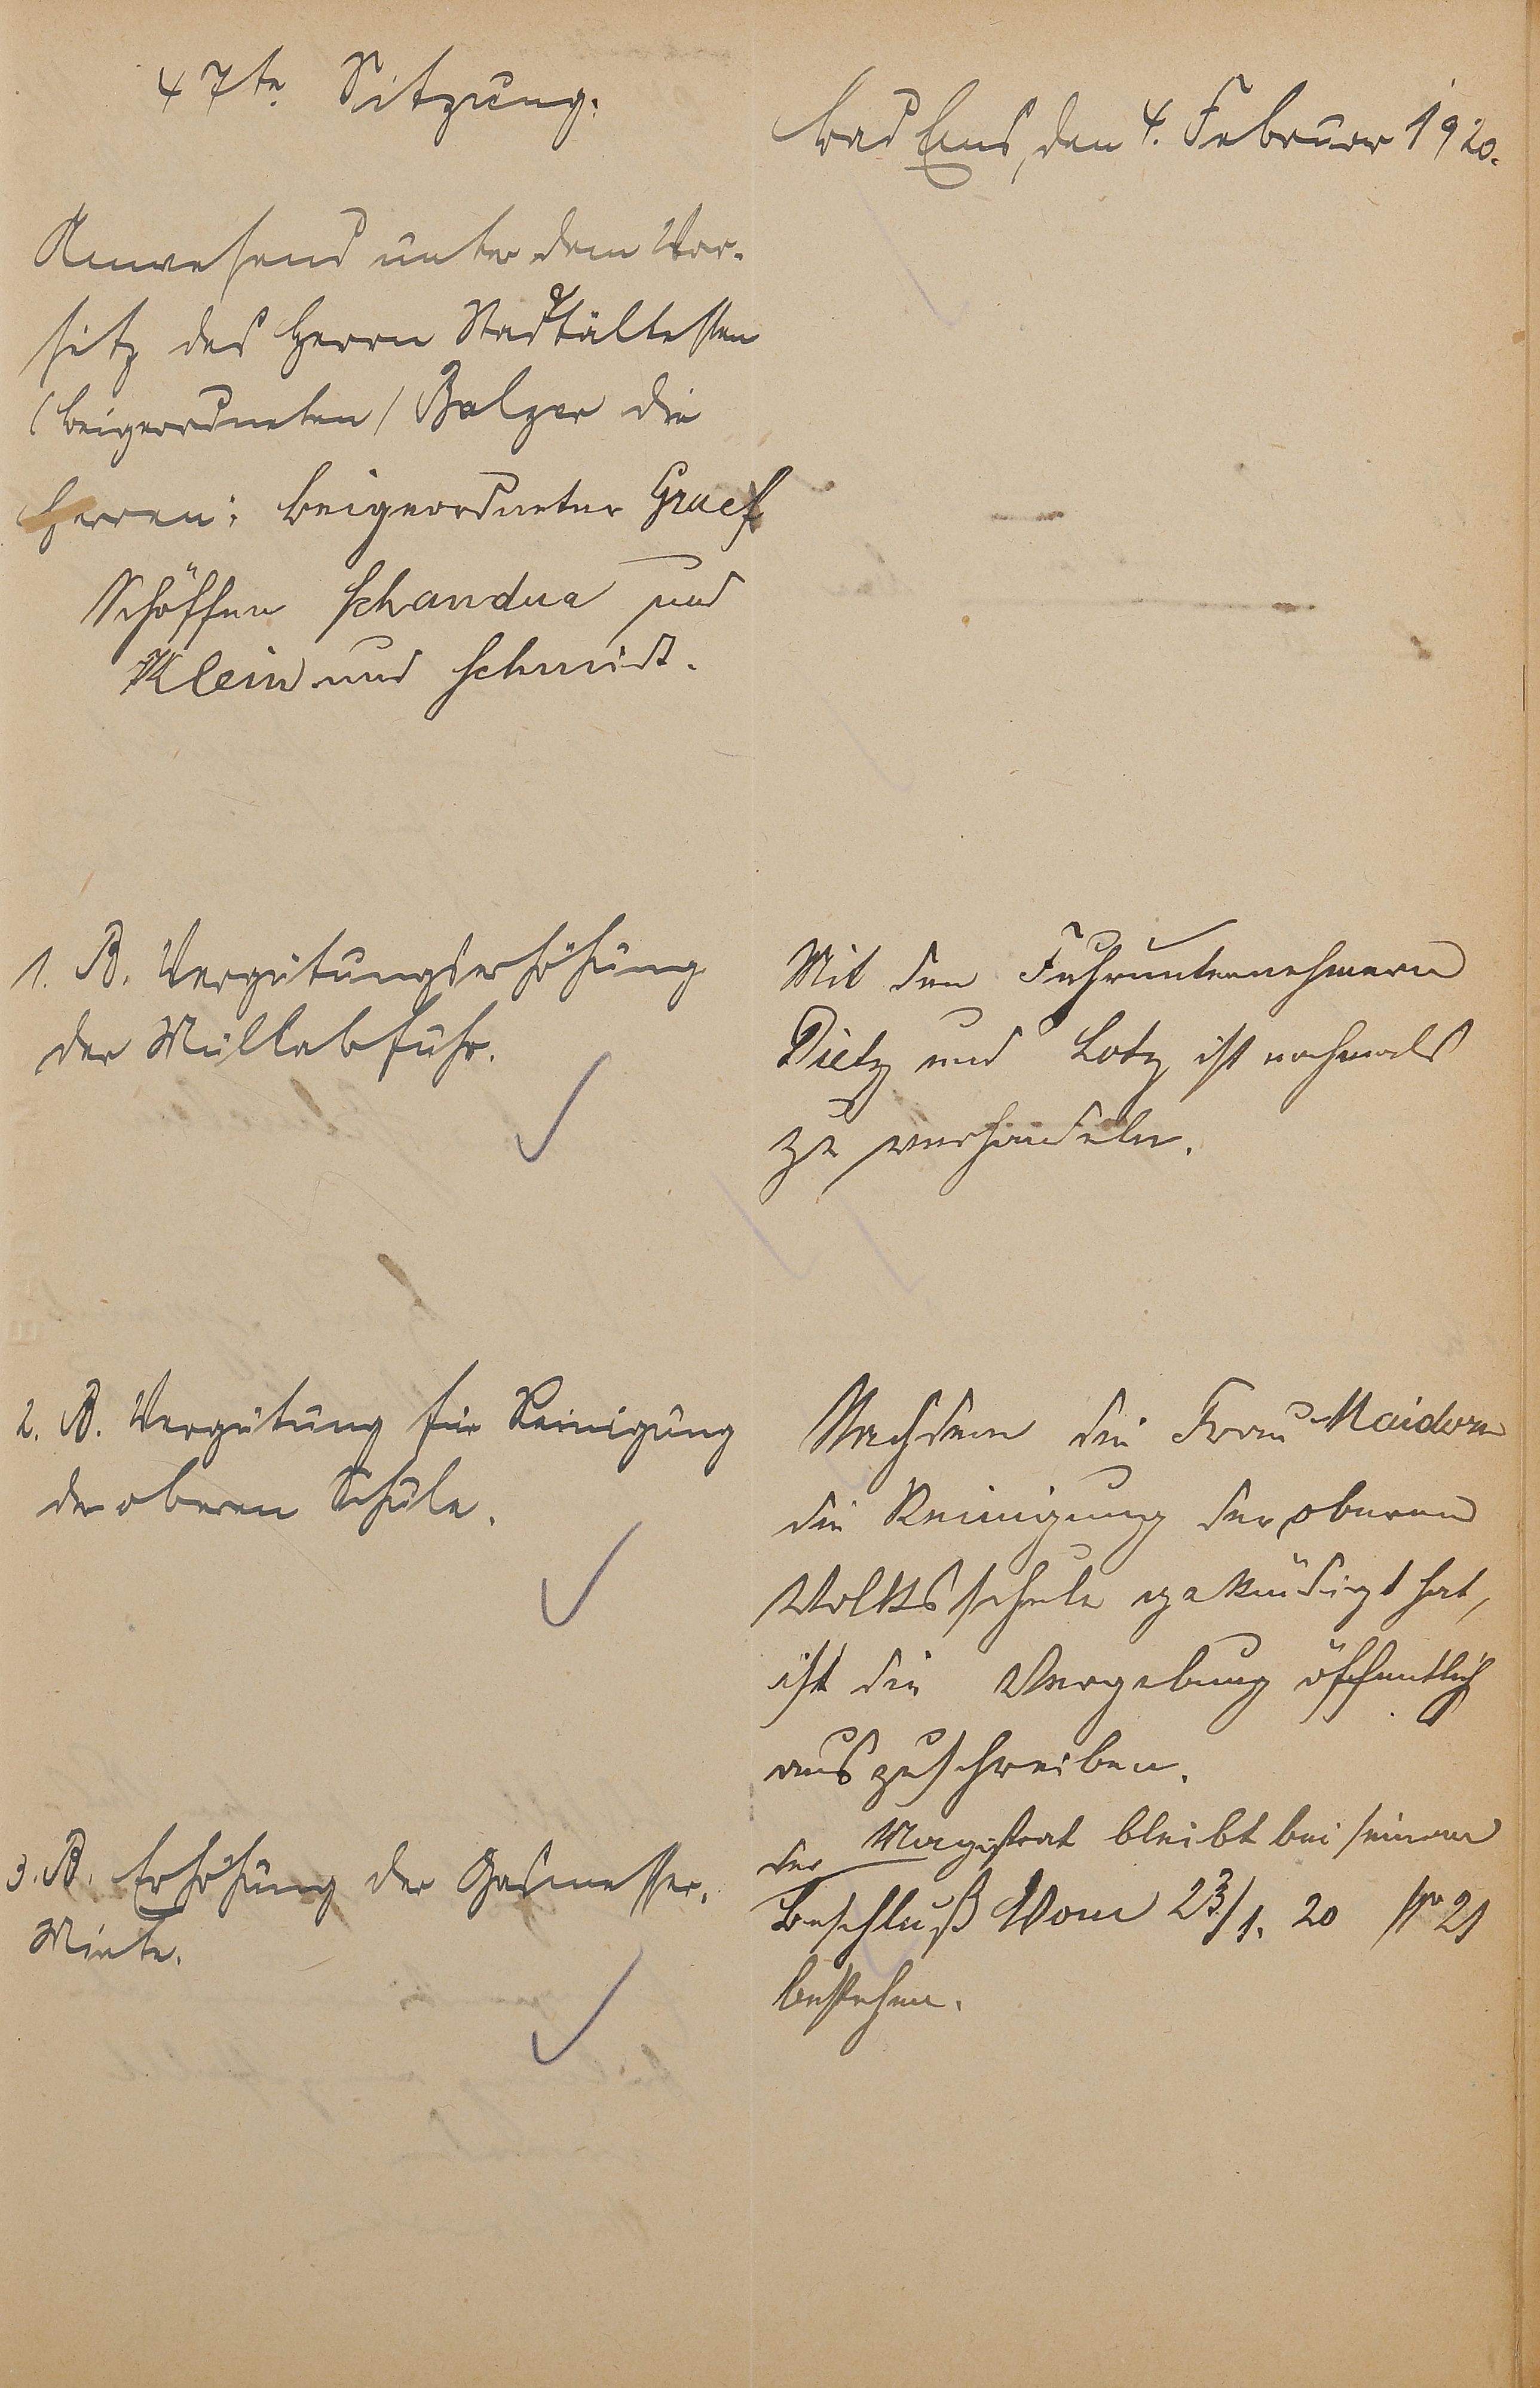 47te Sitzung.
Bad Ems, den 4. Februar 1920.
Anwesend unter dem Vor-
sitz des Herrn Stadtältesten
(Beigeordneten) Balzer die
Herren: Beigeordneter Graef
Schöffen Schandua und
Klein und Schmidt.
1. B. Vergütungserhöhung
der Müllabfuhr.
Mit den Fuhrunternehmern
Dietz und Lotz ist nochmals
zu verhandeln.
2. B. Vergütung für Reinigung
der oberen Schule.
Nachdem die Frau Maidorn
die Reinigung der oberen
Volksschule gekündigt hat,
ist die Vergebung öffentlich
auszuschreiben.
3. B. Erhöhung der Gasmesser-
Miete.
Der Magistrat bleibt bei seinem
Beschluß vom 23/1. 20 No 21
bestehen.